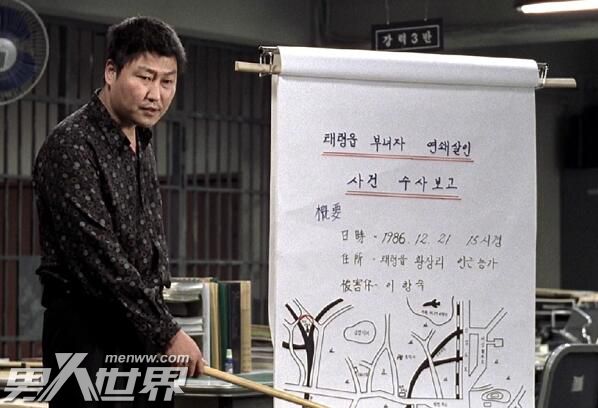 강력3반
태령읍 부녀자 연쇄살인
사건 수사보고
概要
日時 - 1986. 12. 21 15시경
住所 - 태령읍 황상리 인근농가
被害件 - 이향숙
menww.com
男人世界